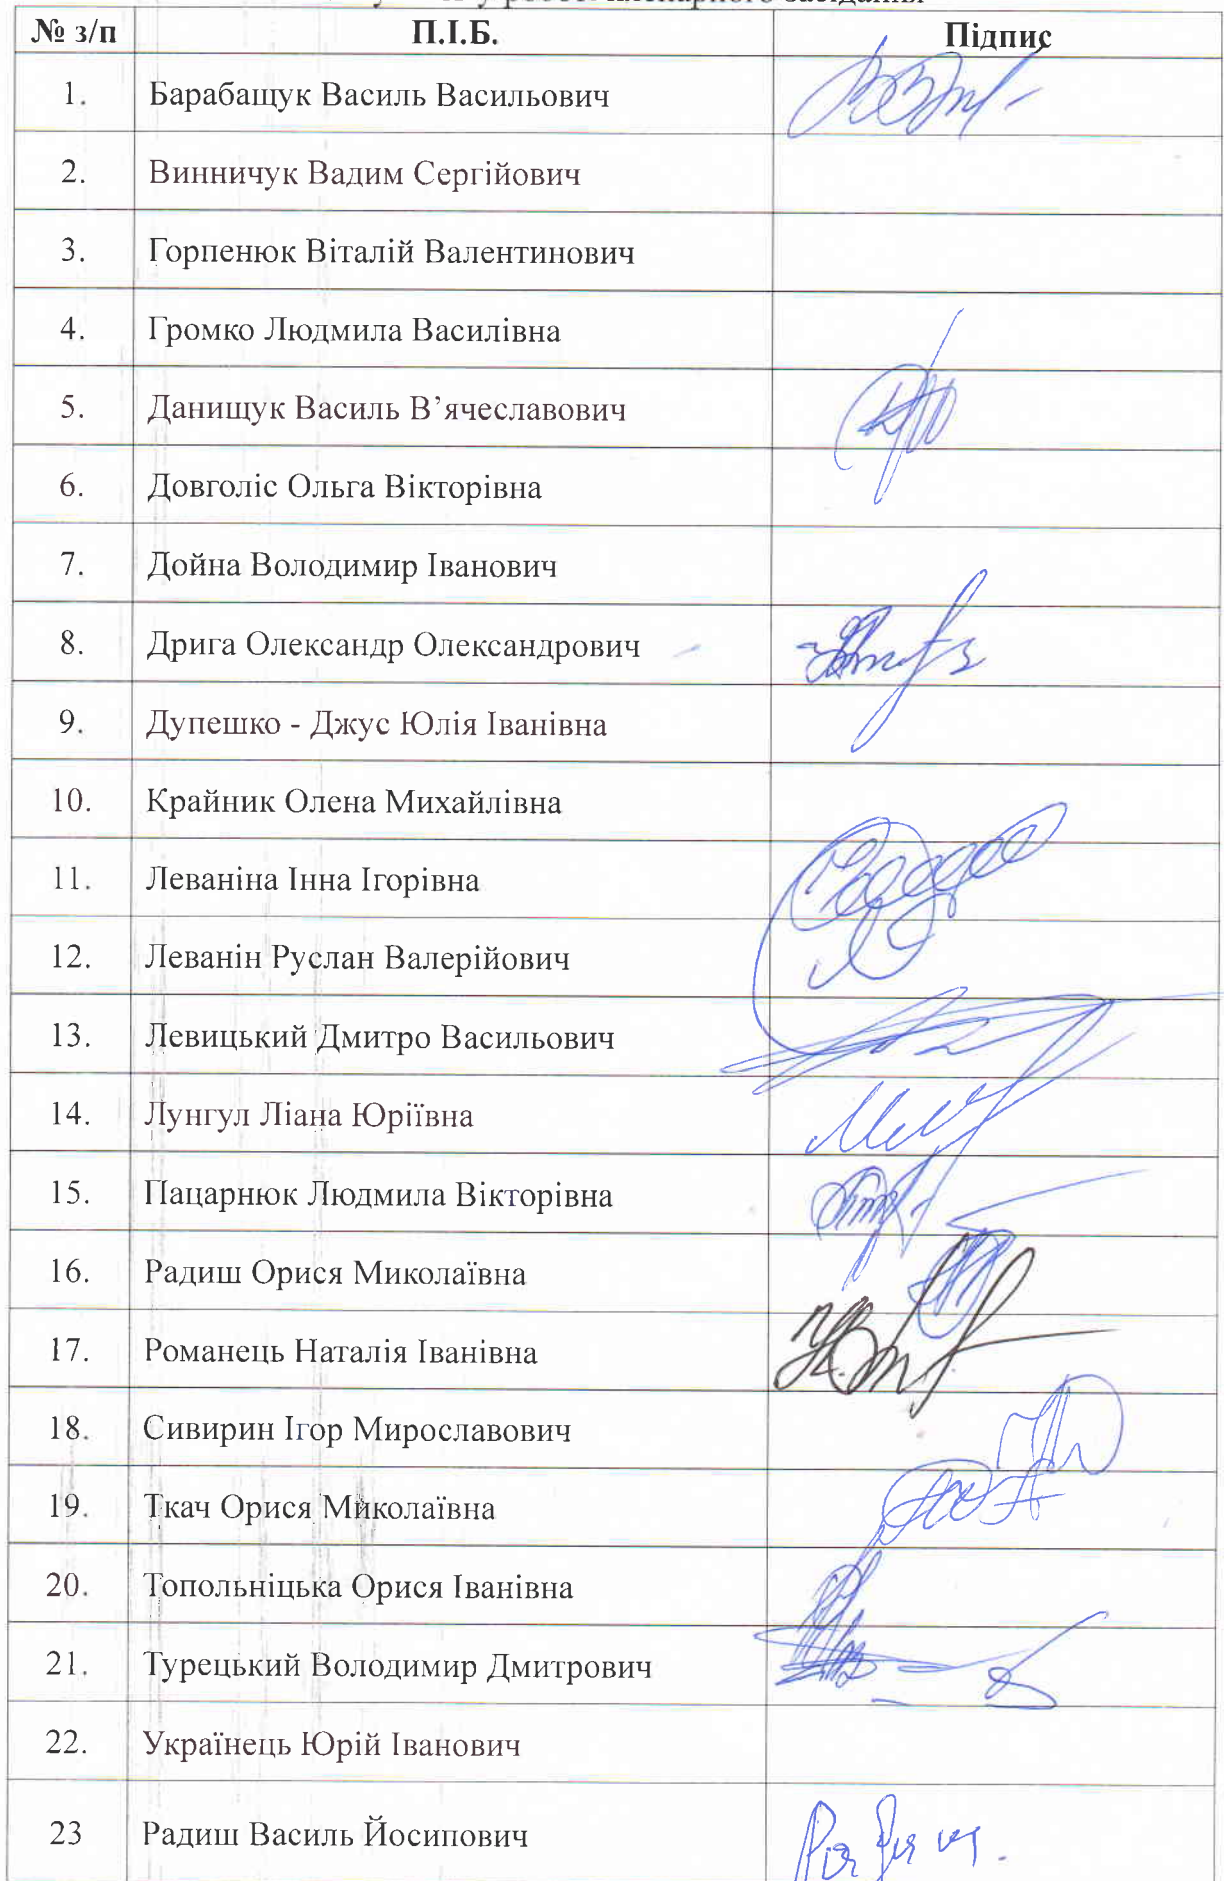 засідання
№ з/п П.І.Б. Підпис
1. Барабащук Василь Васильович
2. Винничук Вадим Сергійович
3. Горпенюк Віталій Валентинович
4. Громко Людмила Василівна
5. Данищук Василь В’ячеславович
6. Довголіс Ольга Вікторівна
7. Дойна Володимир Іванович
8. Дрига Олександр Олександрович
9. Дупешко - Джус Юлія Іванівна
10. Крайник Олена Михайлівна
11. Леваніна Інна Ігорівна
12. Леванін Руслан Валерійович
13. Левицький Дмитро Васильович
14. Лунгул Ліана Юріївна
15. Пацарнюк Людмила Вікторівна
16. Радиш Орися Миколаївна
17. Романець Наталія Іванівна
18. Сивирин Ігор Мирославович
19. Ткач Орися Миколаївна
20. Топольніцька Орися Іванівна
21. Турецький Володимир Дмитрович
22. Українець Юрій Іванович
23 Радиш Василь Йосипович